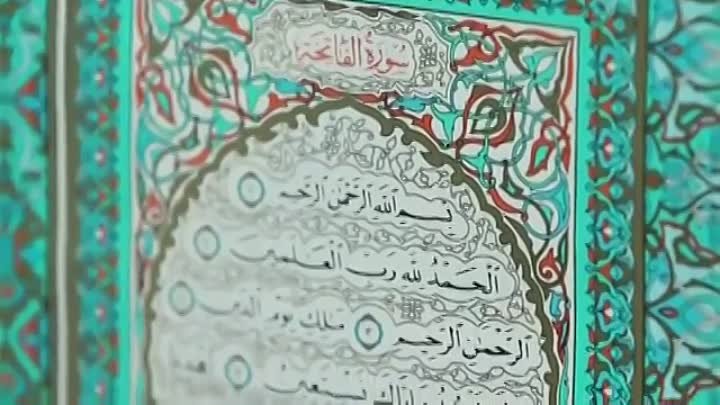 سورة الفاتحة
بسم الله الرحمن الرحيم
الحمد لله رب العلمين
الرحمن الرحيم ٣ ملك يوم الدين
نستعين